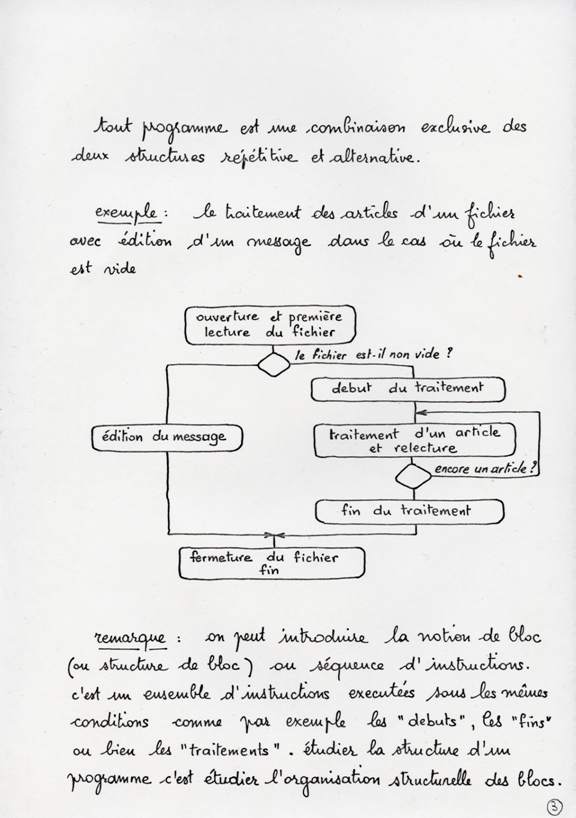 tout programme est une combinaison exclusive des
deux structures répétitive et alternative.
exemple : le traitement des articles d'un fichier
avec édition d'un message dans le cas où le fichier
est vide
ouverture et première
lecture du fichier
le fichier est-il non vide ?
debut du traitement
édition du message
traitement d'un article
et relecture
encore un article ?
fin du traitement
fermeture du fichier
fin
remarque : on peut introduire la notion de bloc
(ou structure de bloc) ou séquence d'instructions.
c'est un ensemble d'instructions executées sous les mêmes
conditions comme par exemple les "debuts", les "fins"
ou bien les "traitements". étudier la structure d'un
programme c'est étudier l'organisation structurelle des blocs.
3